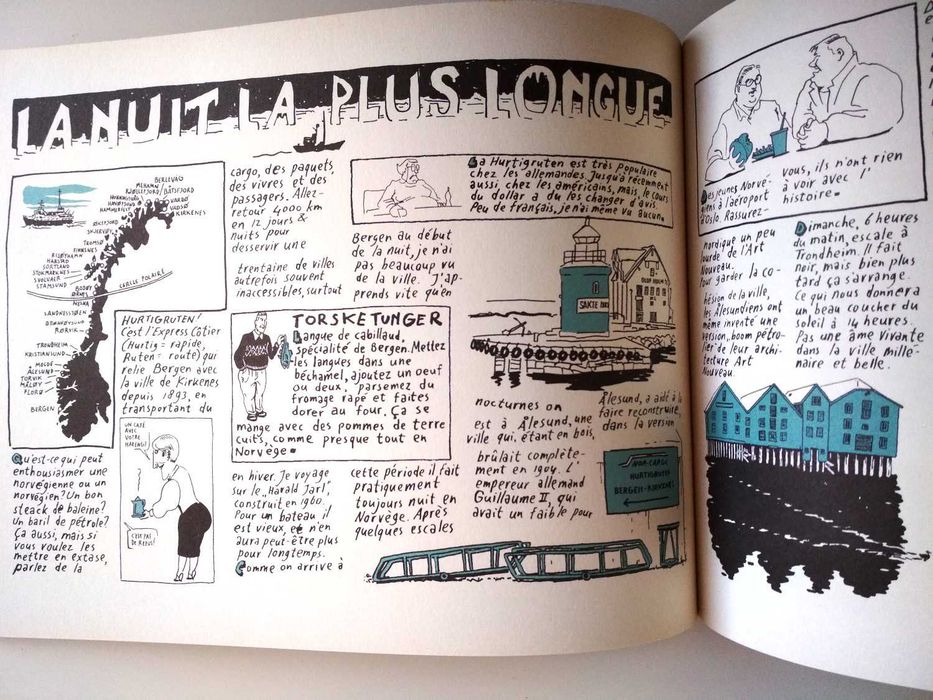 LA NUIT LA PLUS LONGUE
BERLEVAG
MEHAMN
KJØLLEFJORD BÅTSFJORD
HONNINGSVÅG
HAVØYSUND
HAMMERFEST
VARDØ
VADSØ
KIRKENES
ØKSFJORD
SKJERVØY
TROMSØ
FINNSNES
RISØYHAMN
HARSTAD
SORTLAND
STOKMARKNES
SVOLVAER
STAMSUND
BODØ
ØRNES
NESNA
CERCLE POLAIRE
SANDNESSJØEN
BRØNNØYSUND
RØRVIK
TRONDHEIM
KRISTIANSUND
MOLDE
ÅLESUND
TORVIK
MÅLØY
FLORØ
BERGEN
HURTIGRUTEN!
C'est l'Express Côtier
(Hurtig = rapide,
Ruten = route) qui
relie Bergen avec
la ville de Kirkenes
depuis 1893, en
transportant du
Qu'est-ce qui peut
enthousiasmer une
norvégienne ou un
norvégien? Un bon
steack de baleine?
Un baril de pétrole?
Ça aussi, mais si
vous voulez les
mettre en extase,
parlez de la
UN CAFÉ
AVEC
VOTRE
HARENG?
C'EST PAS
DE REFUS!
cargo, des paquets,
des vivres et des
passagers. Aller-
retour 4000 km
en 12 jours &
nuits pour
desservir une
trentaine de villes
autrefois souvent
inaccessibles, surtout
TORSKETUNGER
Langue de cabillaud,
spécialité de Bergen. Mettez
les langues dans une
béchamel, ajoutez un oeuf
ou deux, parsemez du
fromage rapé et faites
dorer au four. Ça se
mange avec des pommes de terre
cuits, comme presque tout en
Norvège.
en hiver. Je voyage
sur le „Harald Jarl",
construit en 1960.
Pour un bateau il
est vieux, et n'en
aura peut-être plus
pour longtemps.
Comme on arrive à
La Hurtigruten est très populaire
chez les allemandes. Jusqu'à récemment
aussi, chez les américains, mais, le cours
du dollar a du les changer d'avis
Peu de français, je n'ai même vu aucun.
Bergen au début
de la nuit, je n'ai
pas beaucoup vu
de la ville. J'ap-
prends vite qu'en
cette période il fait
pratiquement
toujours nuit en
Norvège. Après
quelques escales
SAKTE
nocturnes on
est à Ålesund, une
ville qui, étant en bois,
brûlait complète-
ment en 1904. L'
empereur allemand
Guillaume II, qui
avait un faible pour
Ålesund, a aidé à la
faire reconstruire,
dans la version
NOR-CARGO
HURTIGRUTEN
BERGEN-KIRKENES
Des jeunes Norvé-
giens à l'aéroport
d'Oslo. Rassurez-
vous, ils n'ont rien
à voir avec l'
histoire.
nordique un peu
lourde de l'Art
Nouveau.
Pour garder la co-
hésion de la ville,
les Ålesundiens ont
même inventé une
version, boom pétro-
lier de leur archi-
tecture Art
Nouveau.
Dimanche, 6 heures
du matin, escale à
Trondheim. Il fait
noir, mais bien plus
tard ça s'arrange.
Ce qui nous donnera
un beau coucher du
soleil à 14 heures.
Pas une âme vivante
dans la ville millé-
naire et belle.